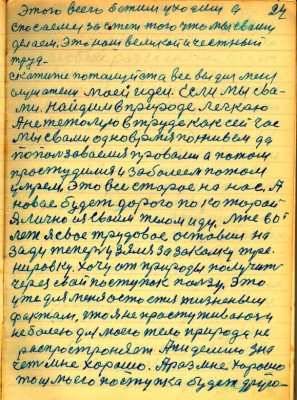 Этого всего боимся уходим а 24
спосаемся за счет того что мы с вами
делаем. Это наш великий и честный
труд.
скажите пожалуйста все вы для меня
слушатели моей идеи. Если мы с ва-
ми. Найдим в природе легкаю
А не тежолую в труде как сейчас
мы с вами одно время поживем да
попользоваемся правами а потом
простудимся и заболеем потом
умрем. Это все старое на нас. А
новае будет дорога по которай
Я лично и своим телом иду. Мне 80
лет я свое трудовое оставил на
заду теперь узялся за закалку тре-
нировку. хочу от природы получить
через свой поступок ползу. Это
уже для меня остался жизненым
фактам, что я не простуживаюся
не болею для моего тела природа не
распространяет Эпидемию зна
чет мне хорошо. А раз мне хорошо
то и у моего поступка будет друго-